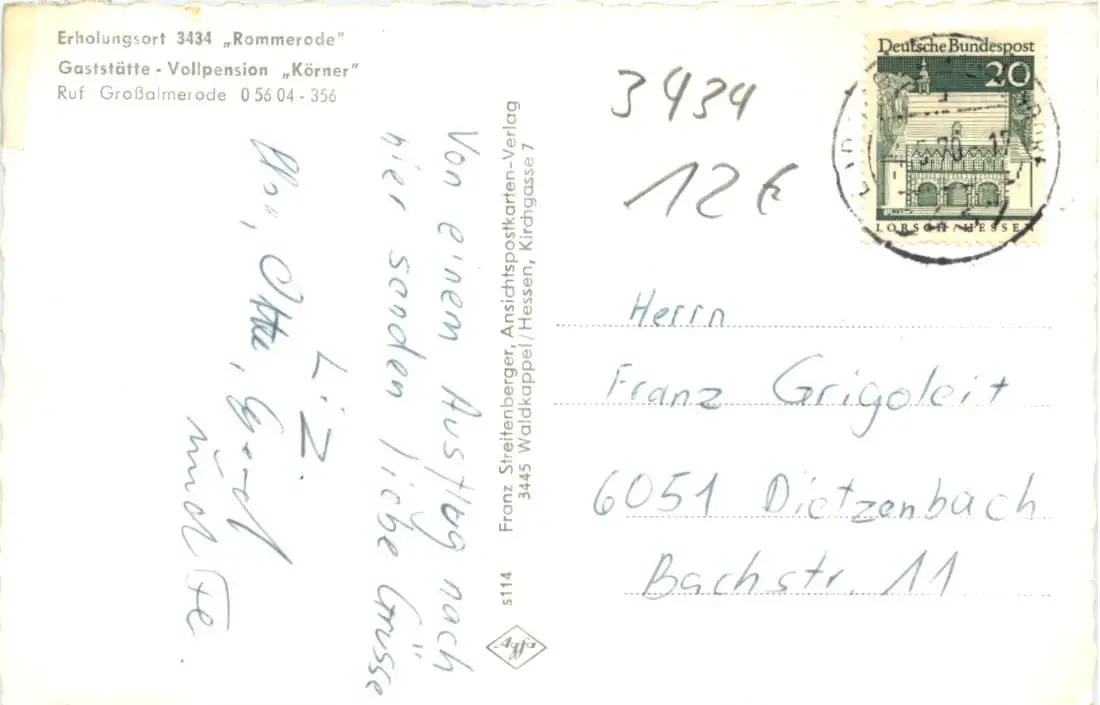 Erholungsort 3434 „Rommerode"
Gaststätte - Vollpension „Körner"
Ruf Großalmerode 0 56 04 - 356
Von einem Ausflug nach
hier senden liebe Grüsse
Liz.
Otte,
und
Franz Streitenberger, Ansichtspostkarten-Verlag
3445 Waldkappel/Hessen, Kirchgasse 7
s114
Agfa
3434
12 €
Deutsche Bundespost
20
LORSCH/HESSEN
Herrn
Franz Grigoleit
6051 Dietzenbach
Bachstr. 11